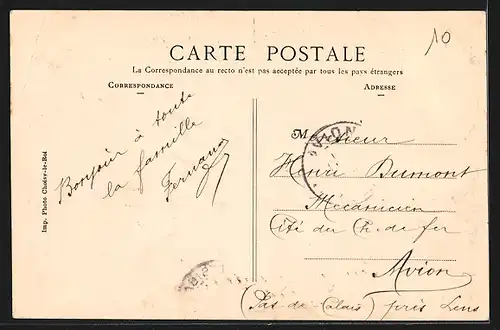 10
CARTE POSTALE
La Correspondance au recto n'est pas acceptée par tous les pays étrangers
CORRESPONDANCE
ADRESSE
Bonjour à toute
la famille
Fernand
Monsieur
Henri Dumont
Mécanicien
Cité du Ch. de fer
Avion
(Pas-de-Calais) près Lens
AVION
Imp. Photo Choisy-le-Roi